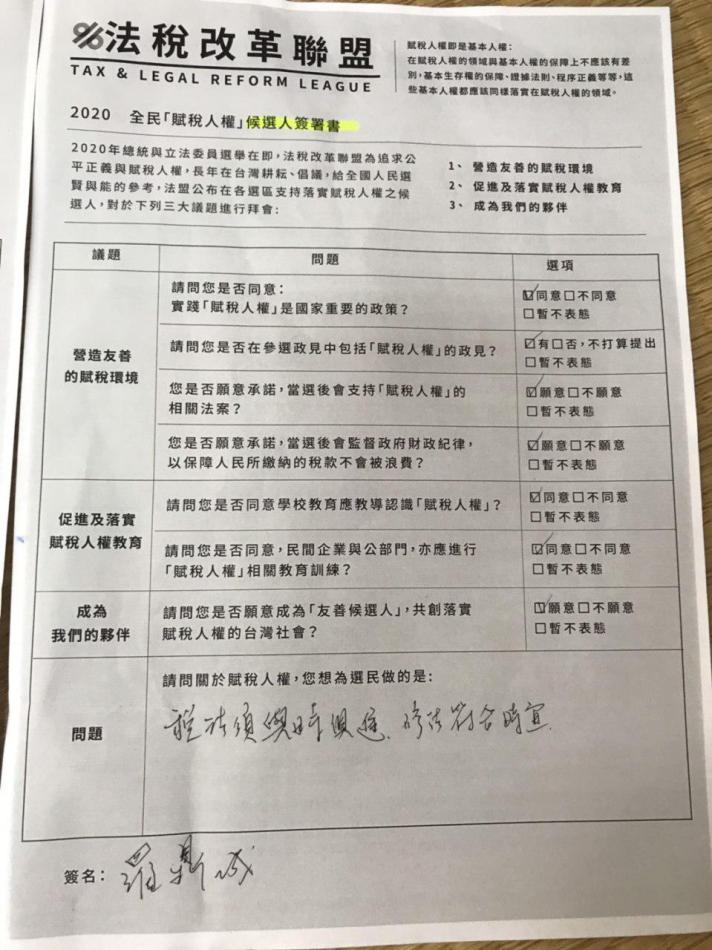 法稅改革聯盟
TAX & LEGAL REFORM LEAGUE
賦稅人權即是基本人權:
在賦稅人權的領域與基本人權的保障上不應該有差
別,基本生存權的保障、證據法則、程序正義等等,這
些基本人權都應該同樣落實在賦稅人權的領域。
2020 全民「賦稅人權」候選人簽署書
2020年總統與立法委員選舉在即,法稅改革聯盟為追求公
平正義與賦稅人權,長年在台灣耕耘、倡議,給全國人民選
賢與能的參考,法盟公布在各選區支持落實賦稅人權之候
選人,對於下列三大議題進行拜會:
1、 營造友善的賦稅環境
2、 促進及落實賦稅人權教育
3、 成為我們的夥伴
議題 問題 選項
營造友善
的賦稅環境
請問您是否同意:
實踐「賦稅人權」是國家重要的政策?
☑同意□不同意
□暫不表態
請問您是否在參選政見中包括「賦稅人權」的政見?
☑有□否,不打算提出
□暫不表態
您是否願意承諾,當選後會支持「賦稅人權」的
相關法案?
☑願意□不願意
□暫不表態
您是否願意承諾,當選後會監督政府財政紀律,
以保障人民所繳納的稅款不會被浪費?
☑願意□不願意
□暫不表態
促進及落實
賦稅人權教育
請問您是否同意學校教育應教導認識「賦稅人權」?
☑同意□不同意
□暫不表態
請問您是否同意,民間企業與公部門,亦應進行
「賦稅人權」相關教育訓練?
☑同意□不同意
□暫不表態
成為
我們的夥伴
請問您是否願意成為「友善候選人」,共創落實
賦稅人權的台灣社會?
☑願意□不願意
□暫不表態
問題
請問關於賦稅人權,您想為選民做的是:
稅法須與時俱進、修法符合時宜
簽名: 羅鼎城